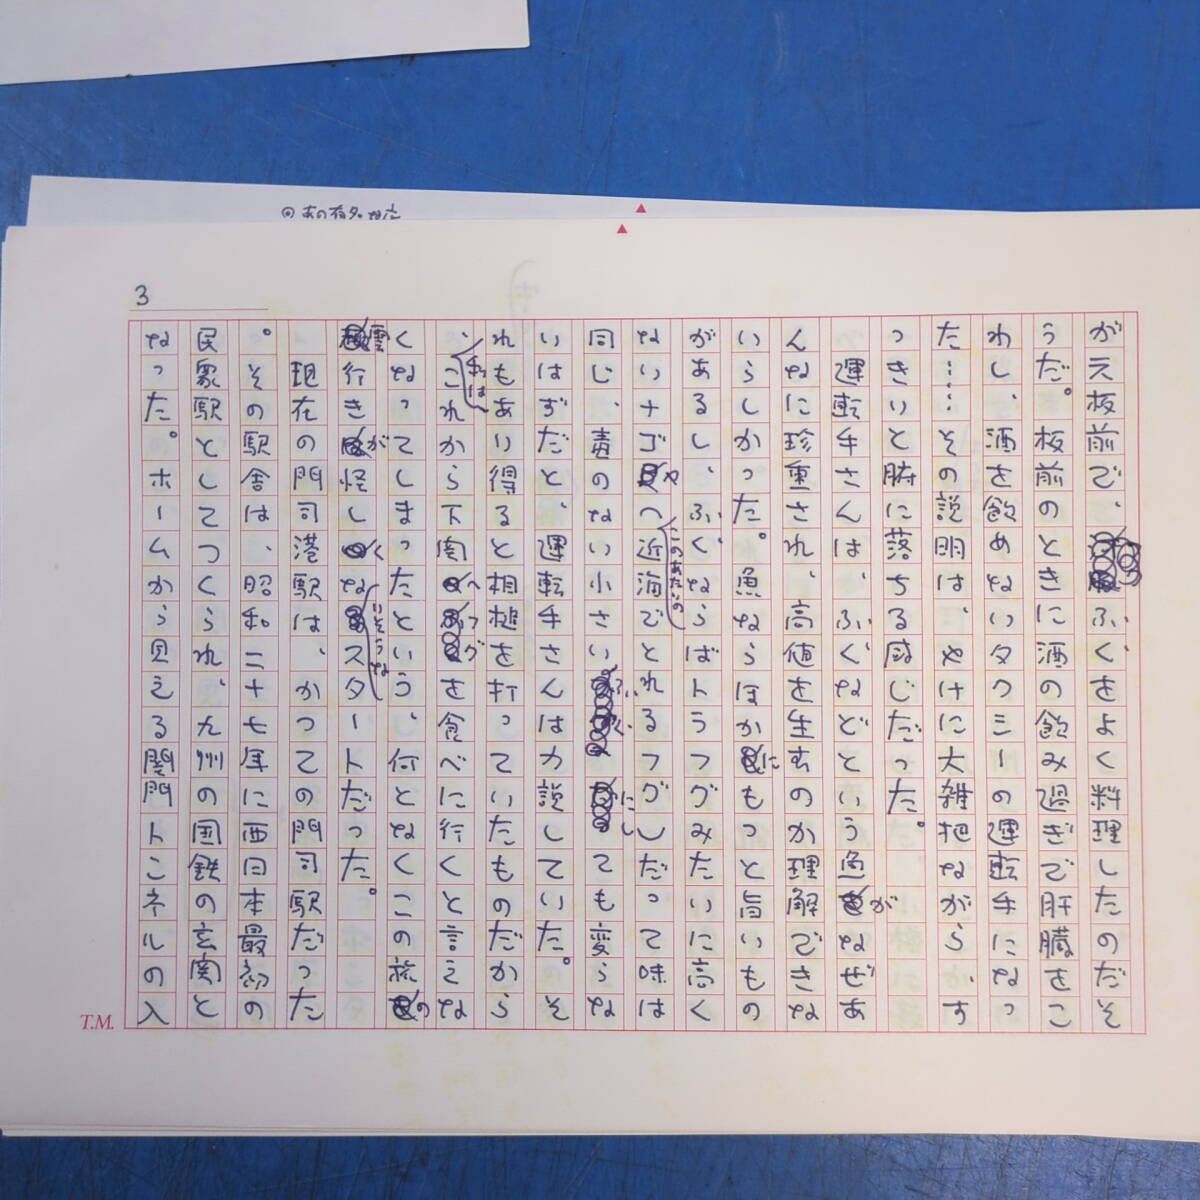 あの
3
が元板前で、ふくをよく料理したのだそ
うだ。板前のときに酒の飲み過ぎで肝臓をこ
わし、酒を飲めないタクシーの運転手になっ
た……その説明は、やけに大雑把ながら、す
っきりと腑に落ちる感じだった。
運転手さんは、ふくなどという魚がなぜあ
んなに珍重され、高値を生むのか理解できな
いらしかった。魚ならほかにもっと旨いもの
があるし、ふくならばトラフグみたいに高く
ないナゴヤへこのあたりの近海でとれるフグしだって味は
同じ、毒のない小さいふくにしても変らな
いはずだと、運転手さんは力説していた。そ
れもあり得ると相槌を打っていたものだから
、私はこれから下関へフグを食べに行くと言えな
くなってしまったという、何となくこの旅の
雲行きが怪しくないそうなスタートだった。
現在の門司港駅は、かつての門司駅だった
。その駅舎は、昭和二十七年に西日本最初の
民衆駅としてつくられ、九州の国鉄の玄関と
なった。ホームから見える関門トンネルの入
T.M.